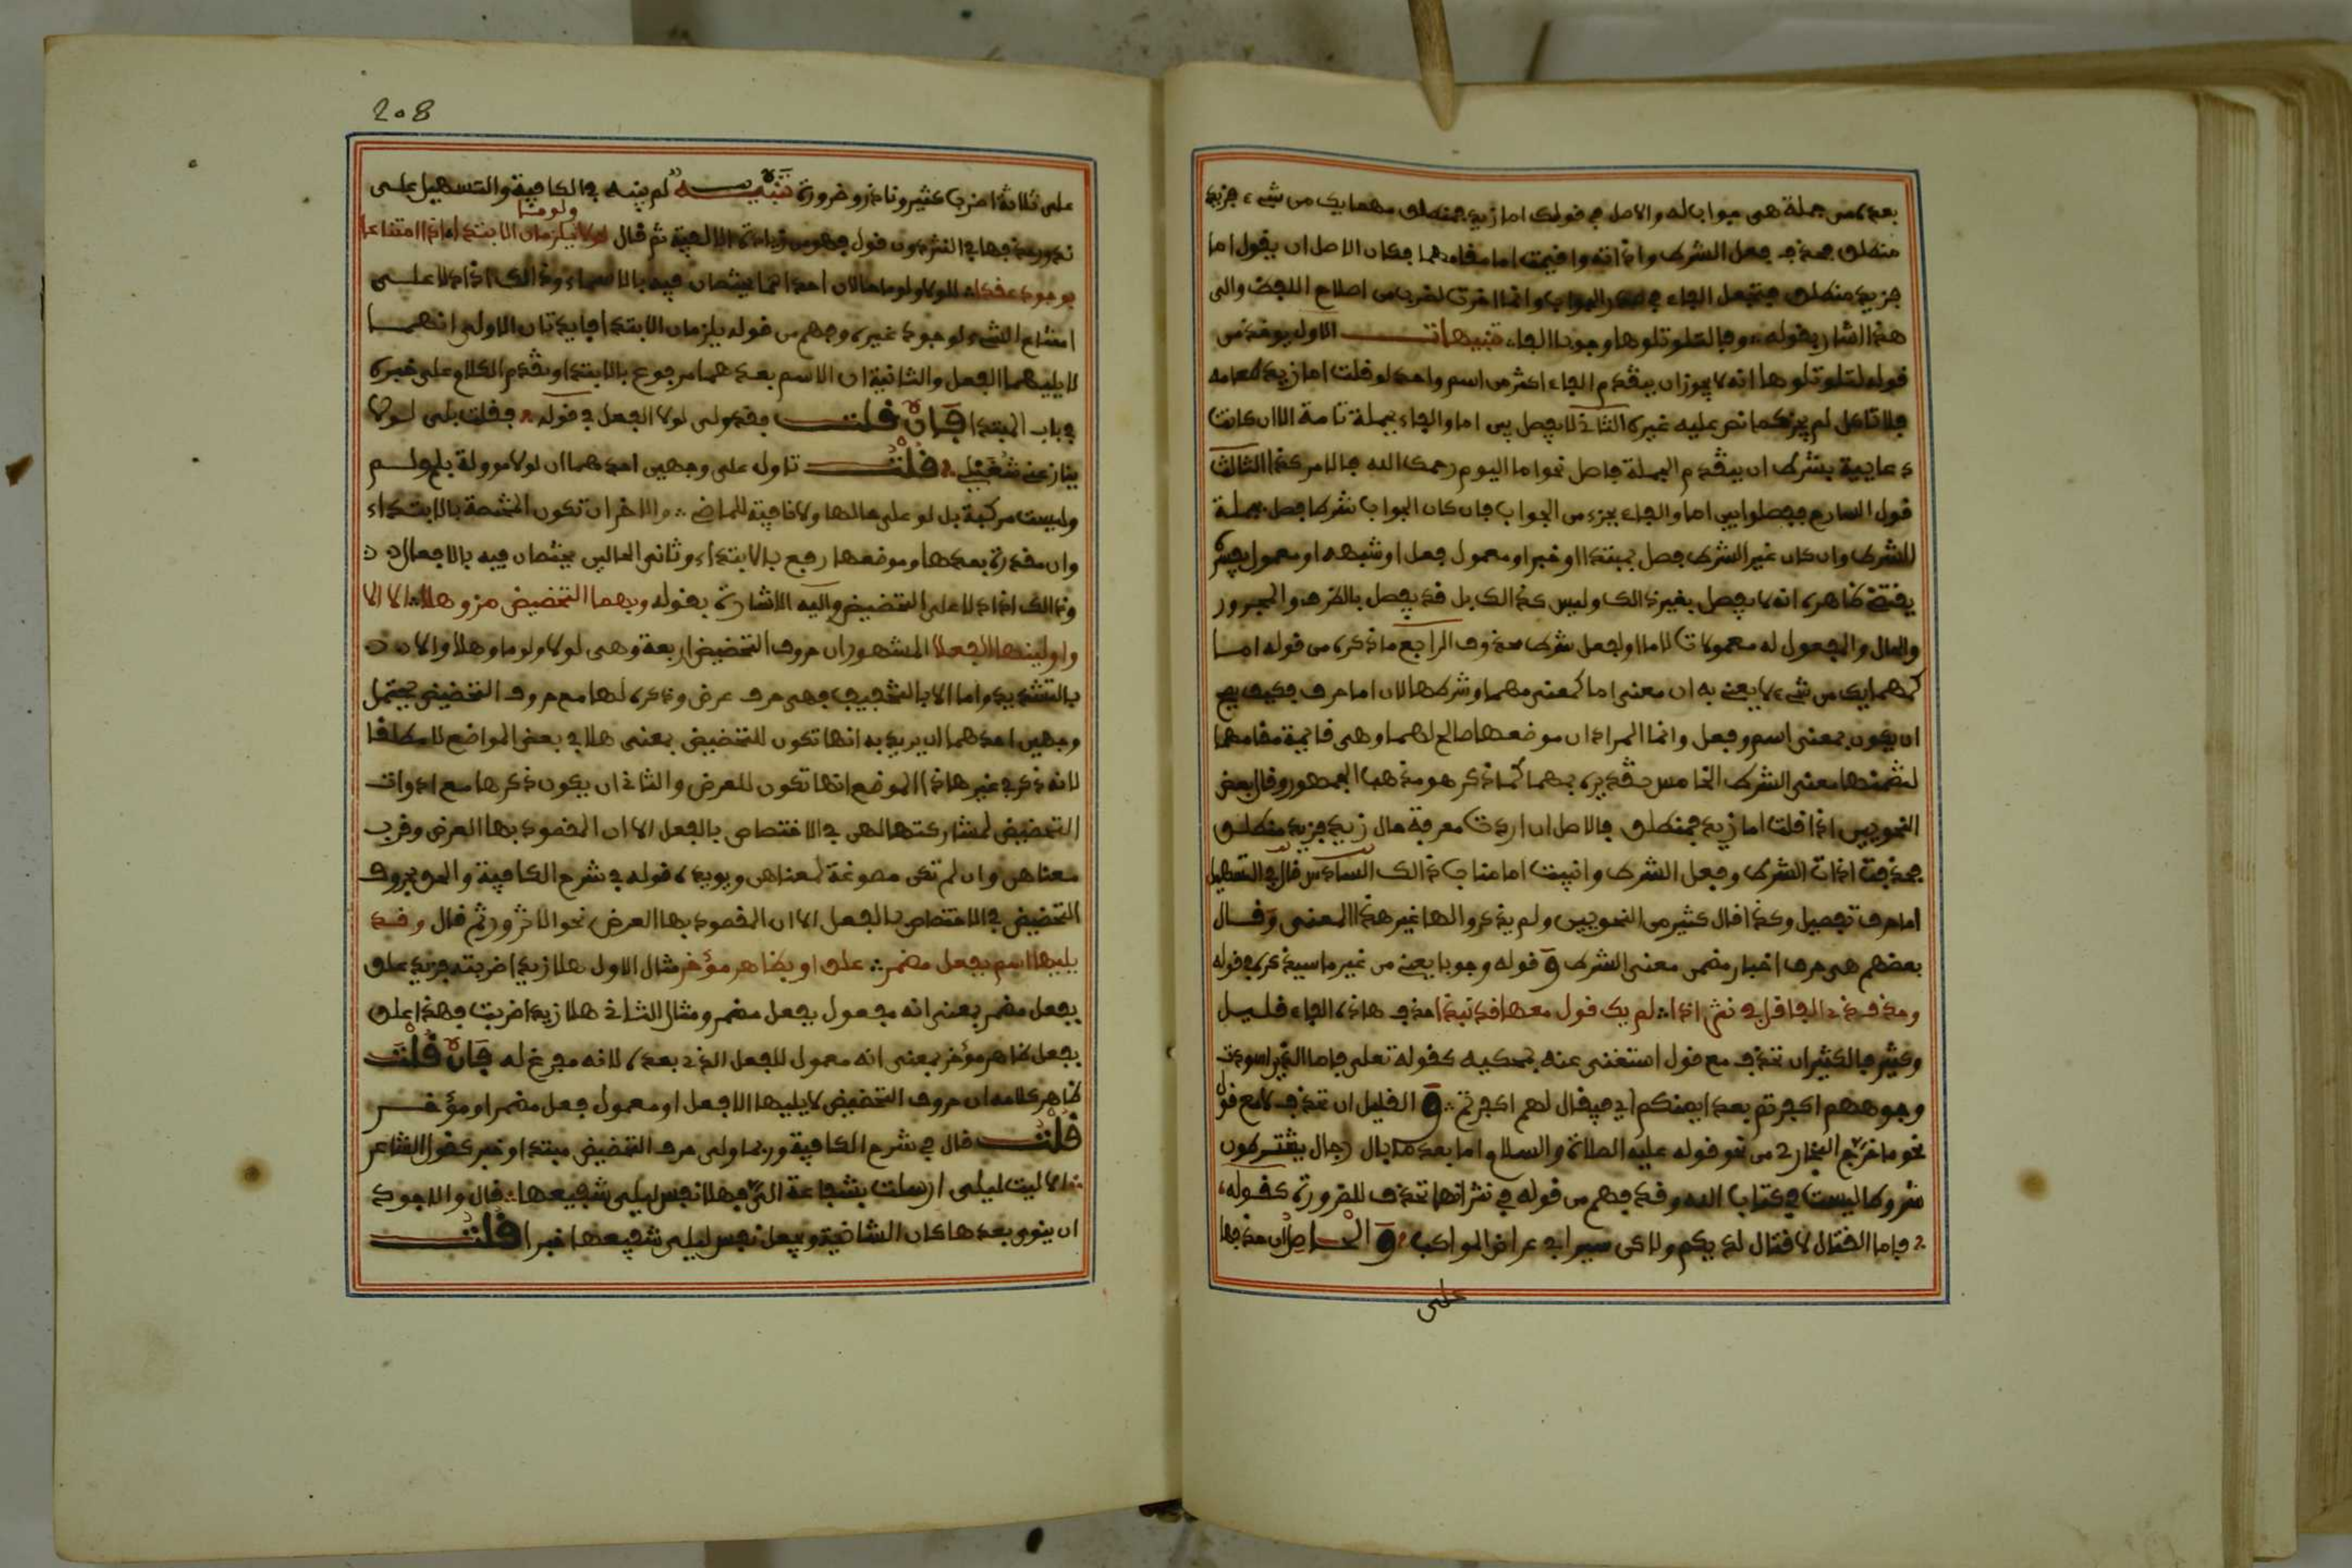 بعده من جملة هى جواب له والاصل في قولك اما زيد فمنطلق مهما يك من شيء فزيد
منطلق فحذف فعل الشرط واداته واقيمت اما مقامهما فكان الاصل ان يقول اما
فزيد منطلق فتجعل الفاء في صدر الجواب وانما اخرت لضرب من اصلاح اللفظ والى
هذا اشار بقوله وفا لتلو تلوها وجوبا الفاء تنبيهات الاول يوخذ من
قوله لتلو تلوها انه لا يجوز ان يتقدم الفاء اكثر من اسم واحد لو قلت اما زيد طعامه
فلا تاكل لم يجز كما نص عليه غيره الثاني لا يفصل بين اما والفاء بجملة تامة الا ان كانت
دعاييه بشرط ان يتقدم الجملة فاصل نحو اما اليوم رحمك الله فالامر كذا الثالث
قول الشارح ففصلوا بين اما والفاء بجزء من الجواب فان كان الجواب شرطا فصل بجملة
الشرط وان كان غير الشرط فصل بمبتدا او خبر او معمول فعل او شبهه او معمول
يقتضي ظاهره انه لا يفصل بغير ذالك وليس كذالك بل قد يفصل بالظرف والمجرور
والحال والمفعول له معمولات لاما او لفعل شرط محذوف الرابع ما ذكره من قوله اما
كمهما يك من شيء لا يعني به ان معنى اما كمعنى مهما وشرطها لان اما حرف فكيف يصح
ان يكون بمعنى اسم وفعل وانما المراد ان موضعها صالح لهما وهى قايمة مقامهما
لتضمنها معنى الشرط الخامس تقديره بمهما كما ذكر هو مذهب الجمهور وقال بعض
النحويين اذا قلت اما زيد فمنطلق فالاصل ان اردت معرفة حال زيد فزيد منطلق
فحذفت اداة الشرط وفعل الشرط وانيبت اما مناب ذالك السادس قال في التسهيل
اما حرف تفصيل وكذا قال كثير من النحويين ولم يذكروا لها غير هذا المعنى وقال
بعضهم هى حرف اخبار مضمن معنى الشرط وَ قوله وجوبا يعني من غير ما سيذكر في قوله
وحذف ذي الفا قل في نثر اذا لم يك قول معها قد نبذا حذف هاذه الفاء قليل
وكثير فالكثير ان تحذف مع قول استغنى عنه بمحكيه كقوله تعلى فاما الذين اسودت
وجوههم اكفرتم بعد ايمنكم اي فيقال لهم اكفرتم وَ القليل ان تحذف لا مع قول
نحو ما خرج البخاري من نحو قوله عليه الصلاة والسلام اما بعد ما بال رجال يشترطون
شروطا ليست في كتاب الله وقد فهم من قوله في نثر انها تحذف للضرورة كقوله
فاما القتال لا قتال لديكم ولاكن سيرا في عراض المواكب وَ الحاصل ان حذفها
على
208
على ثلاثة اضرب كثير ونادر وضرورة تنبيه لم ينبه في الكافية والتسهيل على
ندور حذفها في النثر دون قول فهو من زيادة الالفية ثم قال لولا ولوما يلزمان الابتدا اذا امتناعا
بوجود عقدا للولا ولوما حالان احداهما يختصان فيه بالاسماء وذالك اذا دلا على
امتناع الشيء لوجود غيره وفهم من قوله يلزمان الابتدا فايدتان الاولى انهما
لا يليهما الفعل والثانية ان الاسم بعدهما مرفوع بالابتدا وتقدم الكلام على خبره
في باب المبتدا فان قلت فقد ولى لولا الفعل في قوله فقلت بلى لولا
ينازعني شغلي قلت تاول على وجهين احدهما ان لولا موولة بلو لم
وليست مركبة بل لو على حالها ولا نافية للماضي والاخر ان تكون المختصة بالابتداء
وان مقدرة بعدها وموضعها رفع بالابتداء وثاني الحالين يختصان فيه بالافعال
وذالك اذا دلا على التحضيض واليه الاشارة بقوله وبهما التحضيض مز وهلا الا الا
واولينها الفعلا المشهور ان حروف التحضيض اربعة وهى لولا ولوما وهلا والا
بالتشديد واما الا بالتخفيف فهى حرف عرض وذكره لها مع حروف التحضيض يحتمل
وجهين احدهما ان يريد به انها تكون للتحضيض بمعنى هلا في بعض المواضع لا مطلقا
لانه ذكر في غير هاذا الموضع انها تكون للعرض والثاني ان يكون ذكرها مع ادوات
التحضيض لمشاركتها لهى في الاختصاص بالفعل الا ان المقصود بها العرض وقرب
معناهن وان لم تكن مصوغة لمعناهن ويويده قوله في شرح الكافية والحق بحروف
التحضيض في الاختصاص بالفعل الا ان المقصود بها العرض نحو الا تزور ثم قال وقد
يليها اسم بفعل مضمر علق او بظاهر مؤخر مثال الاول هلا زيدا ضربته فزيد علق
بفعل مضمر بمعنى انه مفعول بفعل مضمر ومثال الثاني هلا زيدا ضربت فهذا علق
بفعل ظاهر مؤخر بمعنى انه معمول للفعل الذي بعده لانه مفرغ له فان قلت
ظاهر كلامه ان حروف التحضيض لا يليها الا فعل او معمول فعل مضمر او مؤخر
قلت قال في شرح الكافية وربما ولى حرف التحضيض مبتدا وخبر كقول الشاعر
الا ليت ليلى ارسلت بشفاعة الي فهلا نفس ليلى شفيعها قال والاجود
ان ينوى بعدها كان الشانية ويجعل نفس ليلى شفيعها خبرا قلت